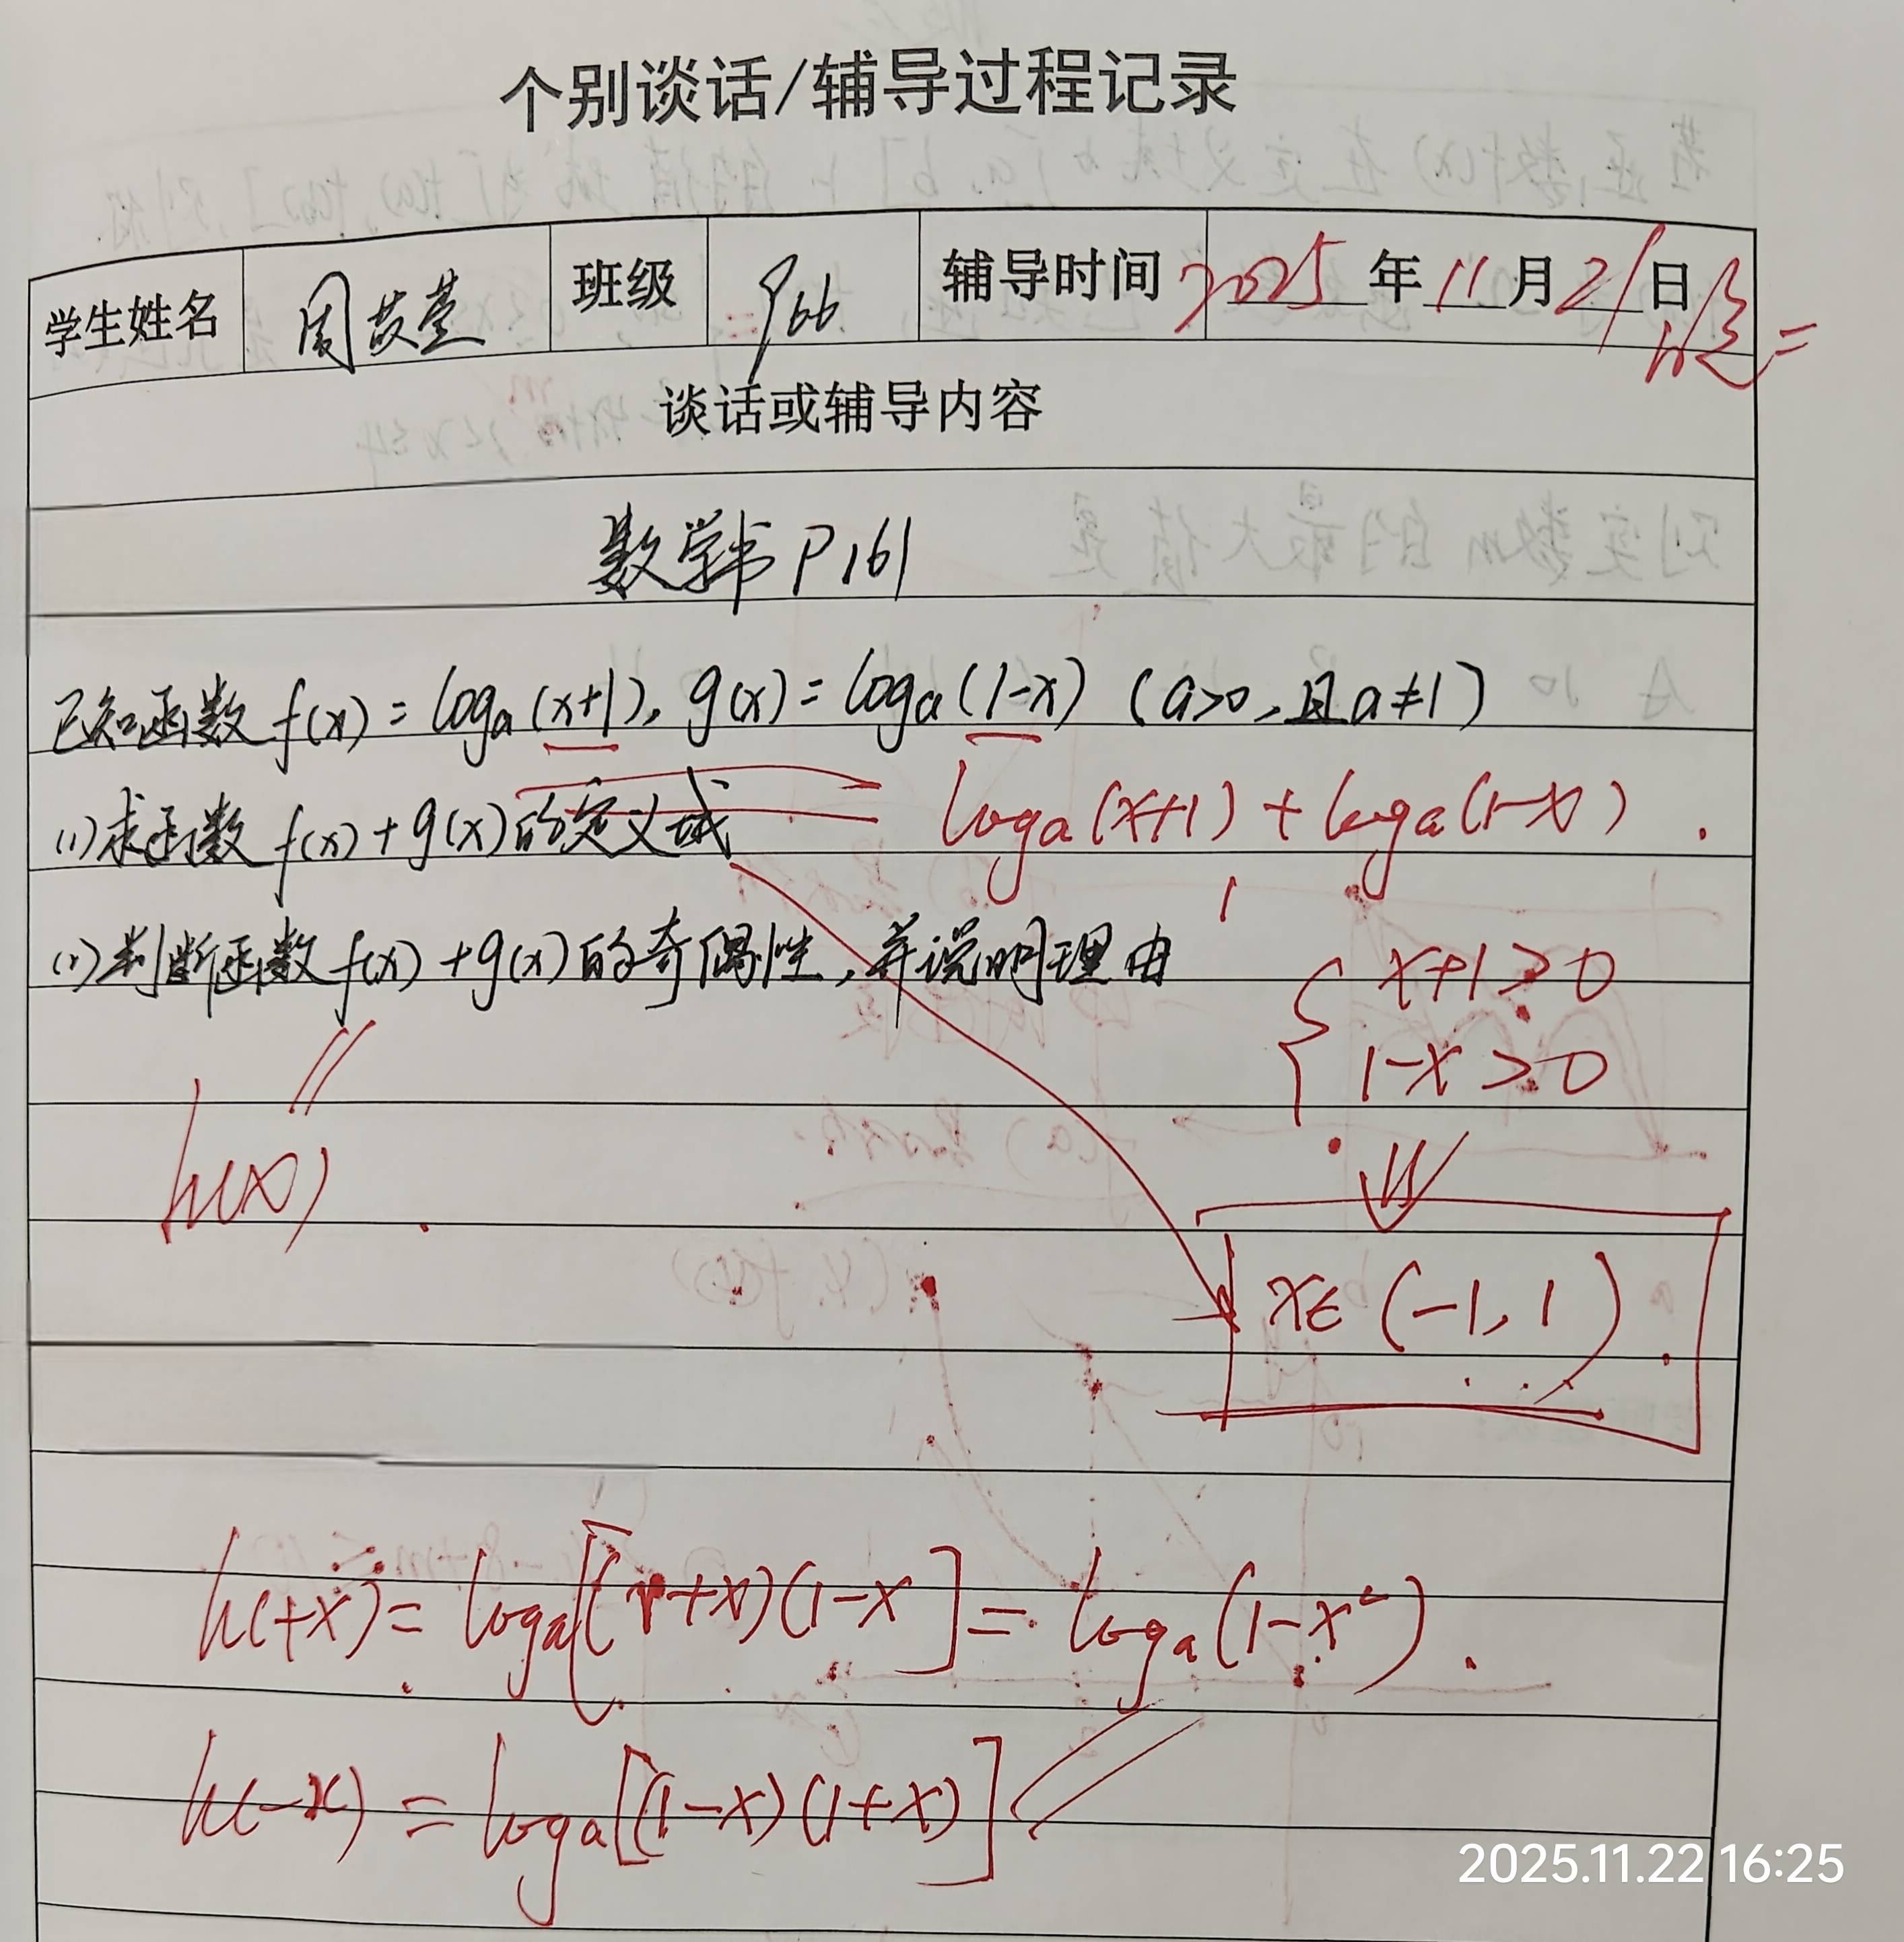 个别谈话/辅导过程记录
学生姓名 周 班级 966 辅导时间 2025年11月21日
谈话或辅导内容
数学书P161
已知函数f(x)=logₐ(x+1),g(x)=logₐ(1-x)(a>0,且a≠1)
(1)求函数f(x)+g(x)的定义域 = logₐ(x+1)+logₐ(1-x).
(2)判断函数f(x)+g(x)的奇偶性,并说明理由
x+1>0
1-x>0
h(x)
x∈(-1,1)
h(+x)=logₐ[(1+x)(1-x]=logₐ(1-x²).
h(-x)=logₐ[(1-x)(1+x)]
2025.11.22 16:25